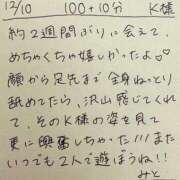 12/10 100+10分 K様
約2週間ぶりに会えて、
めちゃくちゃ嬉しかったよ♡
顔から足先まで全身ねっとり
舐めたら、沢山感じてくれ
て、そのK様の姿を見て
更に興奮しちゃった!!!また
いつでも2人で遊ぼうね!!
みと